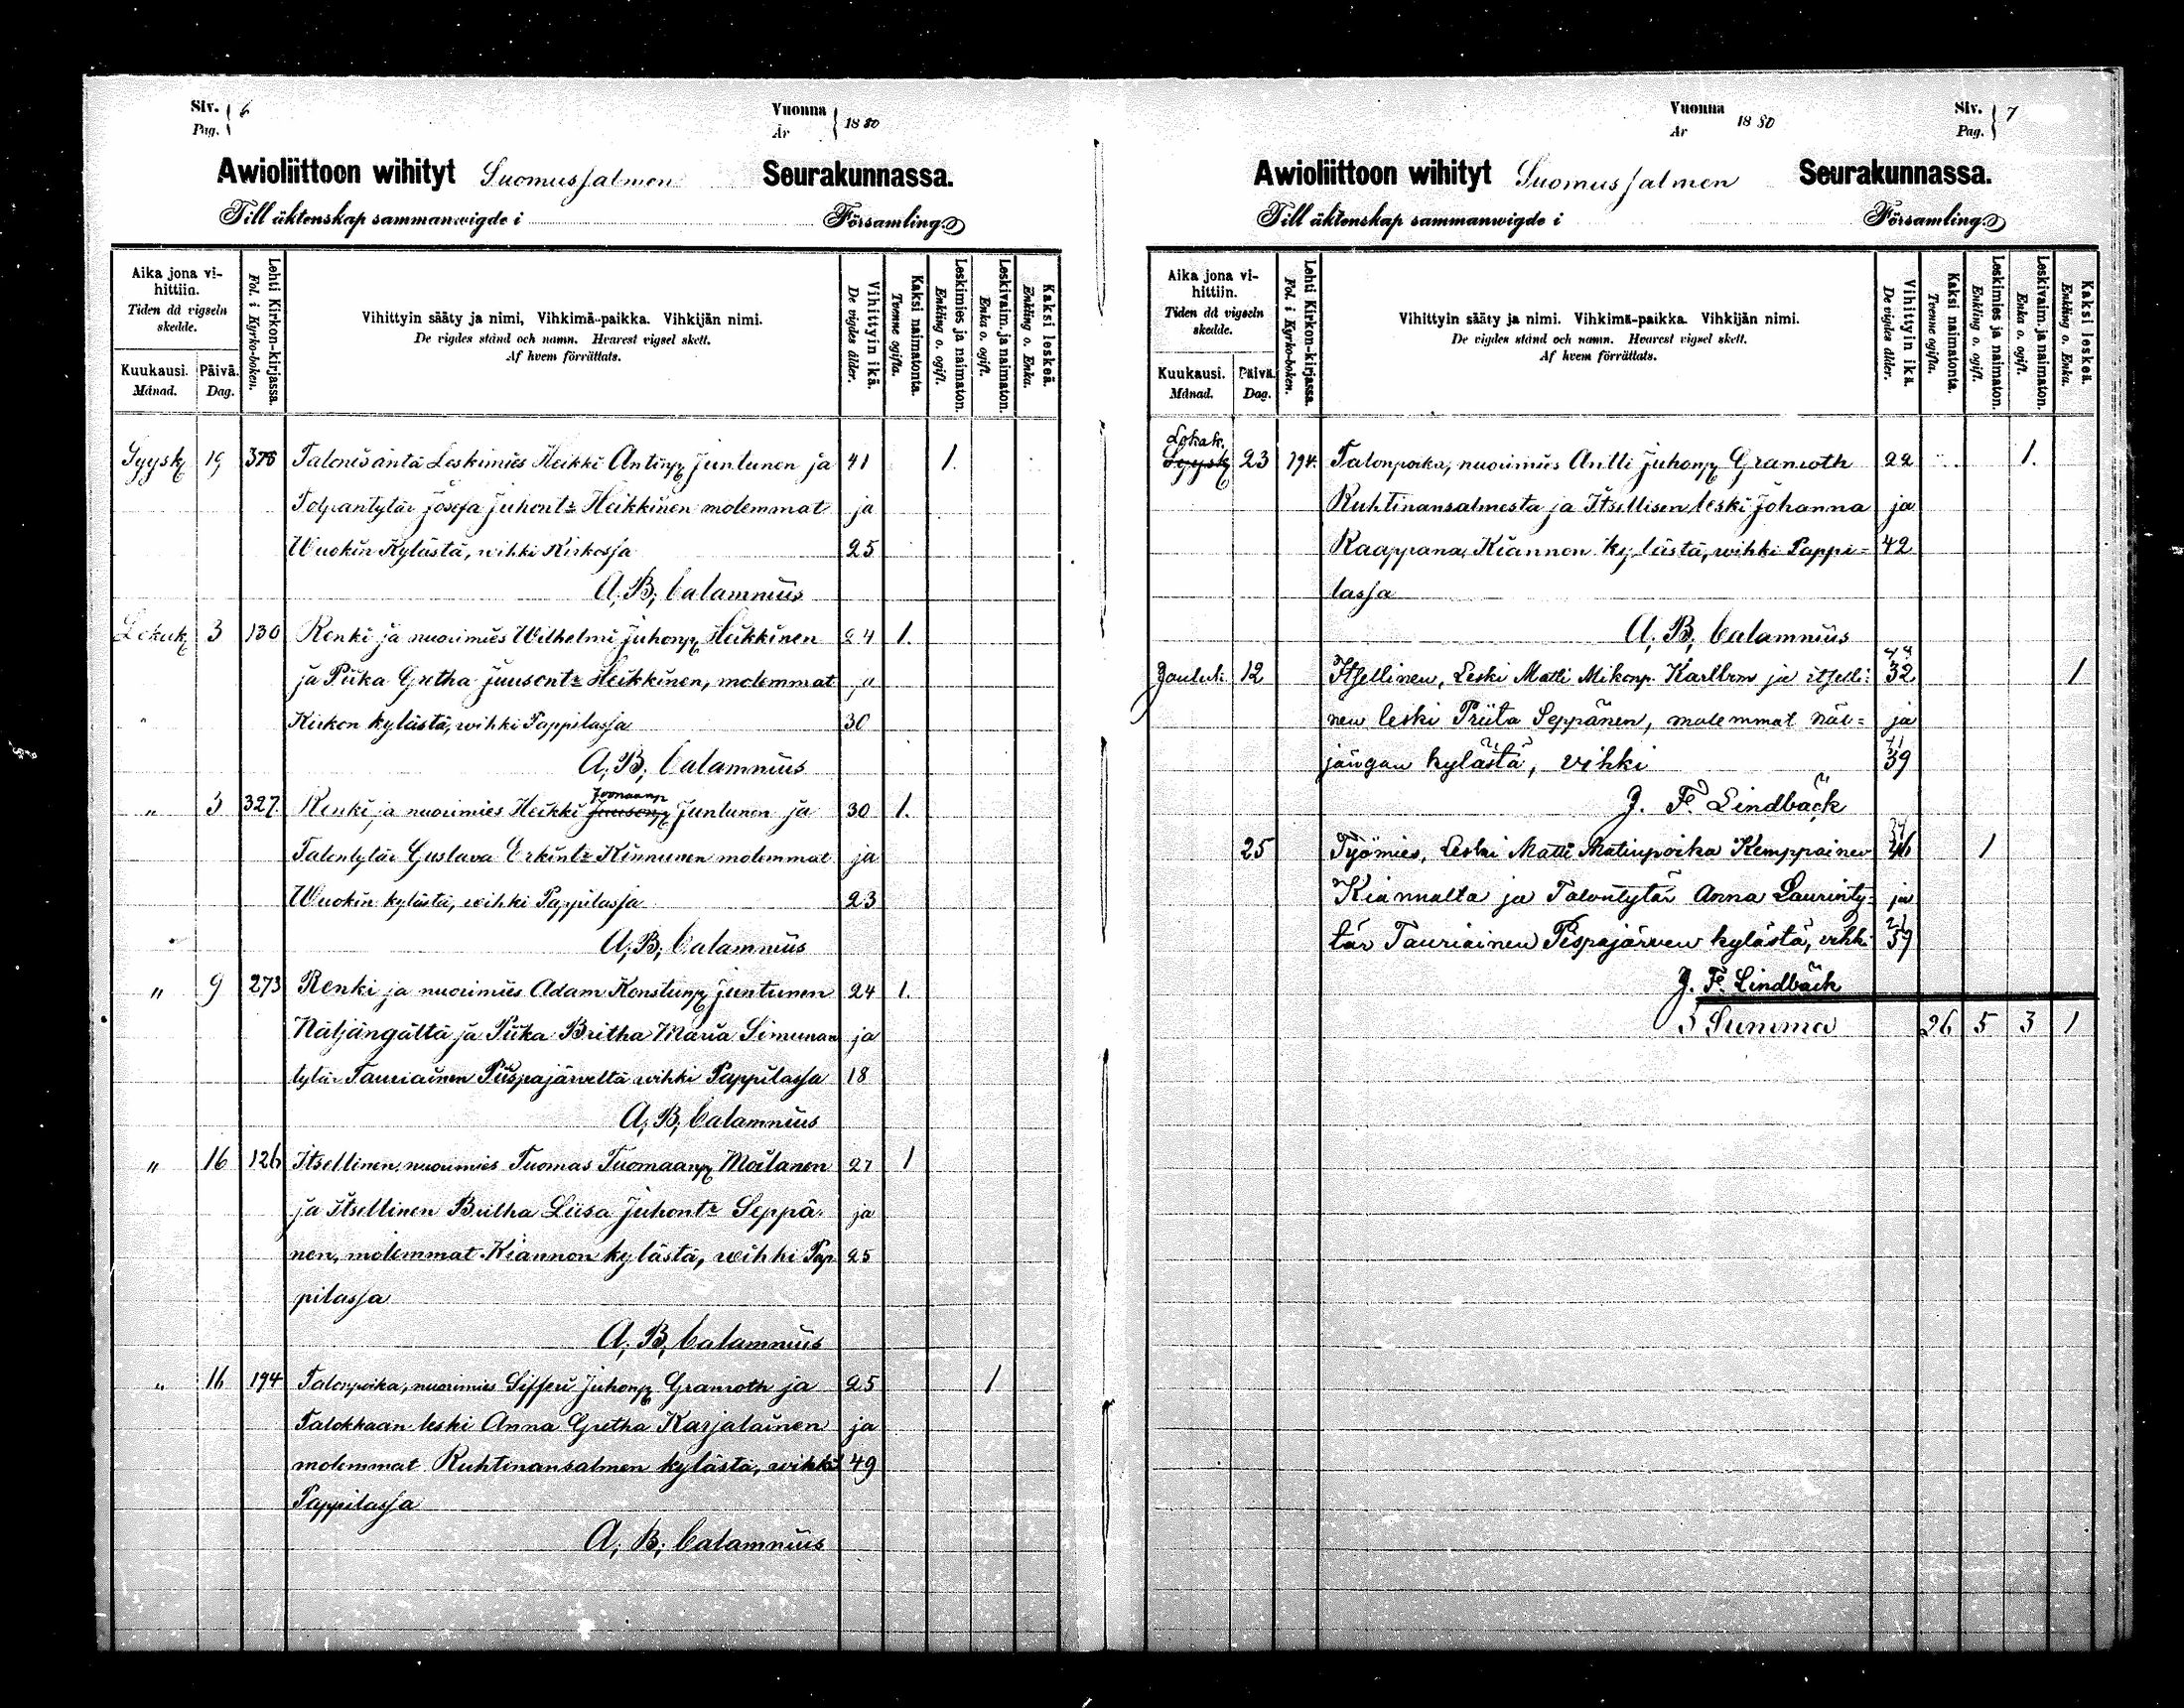 Siv. 6
Pag.
Vuonna 1880
År
Awioliittoon wihityt Suomussalmen Seurakunnassa.
Till äktenskap sammanwigde i Församling.
Aika jona vihittiin.
Tiden då vigseln skedde.
Kuukausi. Månad.
Päivä. Dag.
Lehti Kirkon-kirjassa.
Fol. i Kyrko-boken.
Vihittyin sääty ja nimi, Vihkimä-paikka. Vihkijän nimi.
De vigdes stånd och namn. Hvarest vigsel skett.
Af hvem förrättats.
Vihittyin ikä. De vigdes ålder.
Kaksi naimatonta. Tvenne ogifta.
Leskimies ja naimaton. Enkling o. ogift.
Leskivaim. ja naimaton. Enka o. ogift.
Kaksi leskeä. Enkling o. Enka.
Syysk 19 378 Talonisäntä Leskimies Heikki Antinp Juntunen ja 41 1.
Tolpantytär Josefa Juhontr Heikkinen molemmat ja
Wuokin Kylästä, wihki Kirkossa 25
A. B. Calamnius
Lokak 3 130 Renki ja nuorimies Wilhelmi Juhonp Heikkinen 24 1.
ja Piika Gretha Juusontr Heikkinen, molemmat ja
Kirkon kylästä, wihki Pappilassa 30
A. B. Calamnius
" 3 327 Renki ja nuorimies Heikki Juusonp Joonaanp Juntunen ja 30 1.
Talontytär Gustava Erkintr Kinnunen molemmat ja
Wuokin kylästä, wihki Pappilassa 23
A. B. Calamnius
" 9 273 Renki ja nuorimies Adam Konstunp Juntunen 24 1.
Näljängältä ja Piika Britha Maria Simunan ja
tytär Tauriainen Piispajärveltä wihki Pappilassa 18
A. B. Calamnius
" 16 126 Itsellinen nuorimies Tuomas Tuomaanp Moilanen 27 1
ja Itsellinen Britha Liisa Juhontr Seppä- ja
nen, molemmat Kiannon kylästä, wihki Pap 25
pilassa
A. B. Calamnius
" 16 194 Talonpoika, nuorimies Sifferi Juhonp Granroth ja 25 1
Talokkaan leski Anna Gretha Karjalainen ja
molemmat Ruhtinansalmen kylästä, wihki 49
Pappilassa
A. B. Calamnius
Vuonna 1880
År
Siv. 7
Pag.
Awioliittoon wihityt Suomussalmen Seurakunnassa.
Till äktenskap sammanwigde i Församling.
Aika jona vihittiin.
Tiden då vigseln skedde.
Kuukausi. Månad.
Päivä. Dag.
Lehti Kirkon-kirjassa.
Fol. i Kyrko-boken.
Vihittyin sääty ja nimi. Vihkimä-paikka. Vihkijän nimi.
De vigdes stånd och namn. Hvarest vigsel skett.
Af hvem förrättats.
Vihittyin ikä. De vigdes ålder.
Kaksi naimatonta. Tvenne ogifta.
Leskimies ja naimaton. Enkling o. ogift.
Leskivaim. ja naimaton. Enka o. ogift.
Kaksi leskeä. Enkling o. Enka.
Lokak.
Syysk 23 194. Talonpoika, nuorimies Antti Juhonp Granroth 22 1.
Ruhtinansalmesta ja Itsellisen leski Johanna ja
Kaappana, Kiannon kylästä, wihki Pappi= 42
lassa
A. B. Calamnius
Jouluk. 12 Itsellinen, Leski Matti Mikonp. Karlbom ja itselli= 32 1
nen leski Priita Seppänen, molemmat näl= ja
jängan kylästä, vihki 39
J. F. Lindbäck
25 Työmies, Leski Matti Matinpoika Kemppainen 1
Kiannalta ja Talontytär Anna Laurinty= ja
tär Tauriainen Pispajärven kylästä, vihki
J. F. Lindbäck
Summa 26 5 3 1